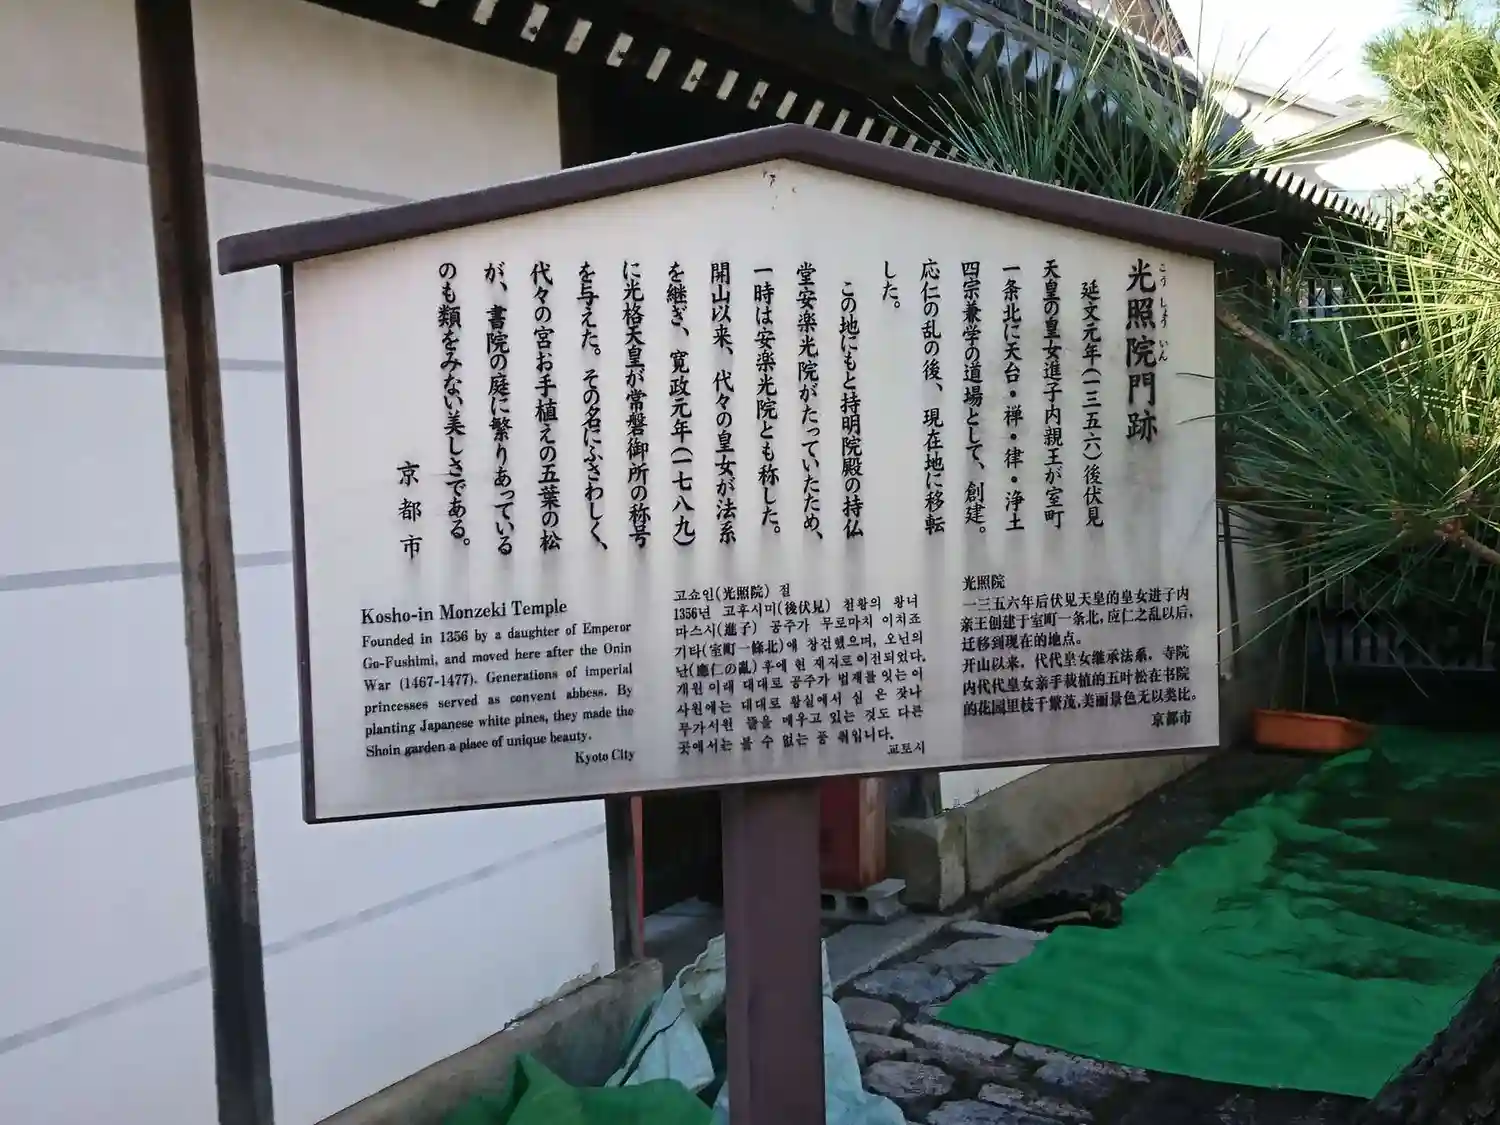 光照院門跡
こうしょういん
延文元年(一三五六)後伏見
天皇の皇女進子内親王が室町
一条北に天台・禅・律・浄土
四宗兼学の道場として、創建。
応仁の乱の後、現在地に移転
した。
この地にもと持明院殿の持仏
堂安楽光院がたっていたため、
一時は安楽光院とも称した。
開山以来、代々の皇女が法系
を継ぎ、寛政元年(一七八九)
に光格天皇が常磐御所の称号
を与えた。その名にふさわしく、
代々の宮お手植えの五葉の松
が、書院の庭に繁りあっている
のも類をみない美しさである。
京都市
Kosho-in Monzeki Temple
Founded in 1356 by a daughter of Emperor
Go-Fushimi, and moved here after the Onin
War (1467-1477). Generations of imperial
princesses served as convent abbess. By
planting Japanese white pines, they made the
Shoin garden a place of unique beauty.
Kyoto City
고쇼인(光照院) 절
1356년 고후시미(後伏見) 천황의 황녀
마스시(進子) 공주가 무로마치 이치죠
기타(室町一條北)에 창건했으며, 오닌의
난(應仁の亂)후에 현 재지로 이전되었다.
개원 이래 대대로 공주가 법제를 잇는 이
사원에는 대대로 황실에서 심 은 잣나
무가 시원 뜰을 메우고 있는 것도 다른
곳에서는 볼 수 없는 풍 취입니다.
교토시
光照院
一三五六年后伏见天皇的皇女进子内
亲王创建于室町一条北,应仁之乱以后,
迁移到现在的地点。
开山以来，代代皇女继承法系，寺院
内代代皇女亲手栽植的五叶松在书院
的花园里枝干繁茂,美丽景色无以类比。
京都市